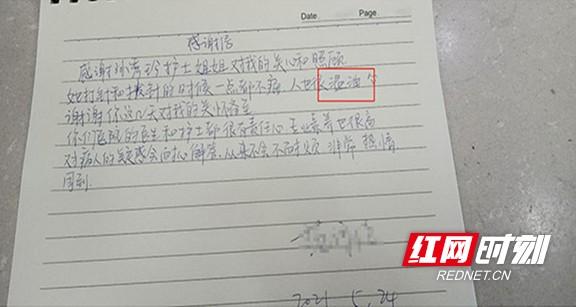 Date Page
感谢信
感谢孙 玲护士姐姐对我的关心和照顾
她打针和拔针的时候一点都不痛 人也很
谢谢你这几天对我的关怀备至
你们医院的医生和护士都很有责任心 专业素养也很高
对病人的疑惑会向 心解答 从来不会不耐烦 非常热情
周到
2021 5.24
红网时刻
REDNET.CN